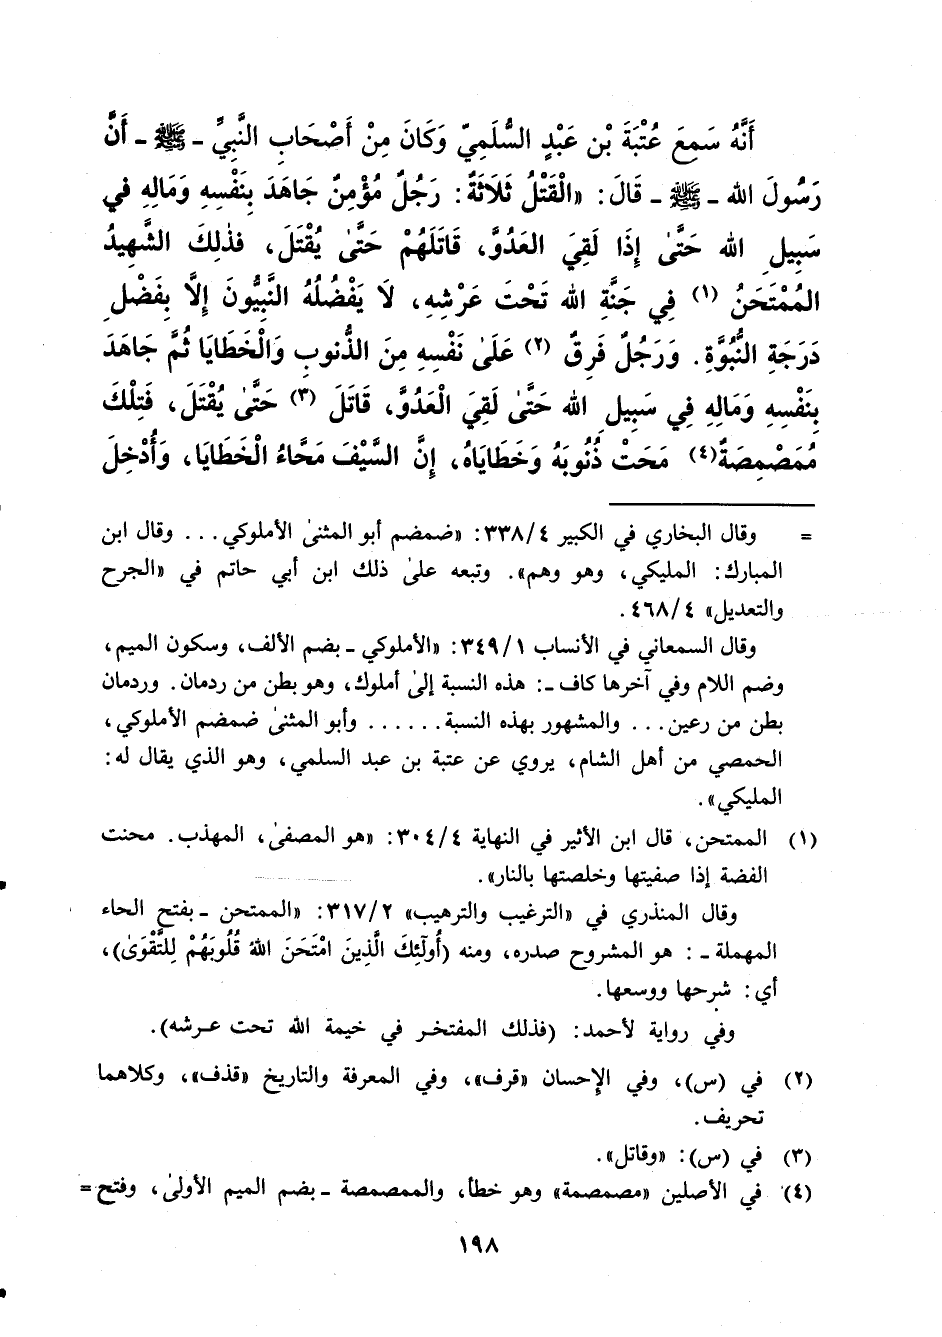 أَنَّهُ سَمِعَ عُتْبَةَ بْنِ عَبْدٍ السُّلَمِيّ وَكَانَ مِنْ أَصْحَابِ النَّبِيِّ ـ ﷺ ـ أَنَّ
رَسُولَ الله ـ ﷺ ـ قَالَ: «الْقَتْلُ ثَلَاثَةٌ: رَجُلٌ مُؤْمِنٌ جَاهَدَ بِنَفْسِهِ وَمَالِهِ فِي
سَبِيلِ الله حَتَّىٰ إِذَا لَقِيَ العَدُوَّ، قَاتَلَهُمْ حَتَّىٰ يُقْتَلَ، فذٰلِكَ الشَّهِيدُ
المُمْتَحَنُ (١) فِي جَنَّةِ الله تَحْتَ عَرْشِهِ، لَا يَفْضُلُهُ النَّبِيُّونَ إِلَّا بِفَضْلِ
دَرَجَةِ النُّبُوَّةِ. وَرَجُلٌ فَرِقٌ (٢) عَلَىٰ نَفْسِهِ مِنَ الذُّنوبِ وَالْخَطَايَا ثُمَّ جَاهَدَ
بِنَفْسِهِ وَمَالِهِ فِي سَبِيلِ الله حَتَّىٰ لَقِيَ الْعَدُوَّ، قَاتَلَ (٣) حَتَّىٰ يُقْتَلَ، فَتِلْكَ
مُمَصْمِصَةٌ(٤) مَحَتْ ذُنُوبَهُ وَخَطَايَاهُ، إِنَّ السَّيْفَ مَحَّاءُ الْخَطَايَا، وَأُدْخِلَ
= وقال البخاري في الكبير ٣٣٨/٤: «ضمضم أبو المثنىٰ الأملوكي... وقال ابن
المبارك: المليكي، وهو وهم». وتبعه علىٰ ذلك ابن أبي حاتم في «الجرح
والتعديل» ٤٦٨/٤.
وقال السمعاني في الأنساب ٣٤٩/١: «الأملوكي ـ بضم الألف، وسكون الميم،
وضم اللام وفي آخرها كاف ـ: هذه النسبة إلىٰ أملوك، وهو بطن من ردمان. وردمان
بطن من رعين... والمشهور بهذه النسبة...... وأبو المثنىٰ ضمضم الأملوكي،
الحمصي من أهل الشام، يروي عن عتبة بن عبد السلمي، وهو الذي يقال له:
المليكي».
(١) الممتحن، قال ابن الأثير في النهاية ٣٠٤/٤: «هو المصفىٰ، المهذب. محنت
الفضة إذا صفيتها وخلصتها بالنار».
وقال المنذري في «الترغيب والترهيب» ٣١٧/٢: «الممتحن ـ بفتح الحاء
المهملة ـ: هو المشروح صدره، ومنه (أُولَئِكَ الَّذِينَ امْتَحَنَ اللهُ قُلُوبَهُمْ لِلتَّقْوَىٰ)،
أي: شرحها ووسعها.
وفي رواية لأحمد: (فذلك المفتخر في خيمة الله تحت عرشه).
(٢) في (س)، وفي الإحسان «قرف»، وفي المعرفة والتاريخ «قذف»، وكلاهما
تحريف.
(٣) في (س): «وقاتل».
(٤) في الأصلين «مصمصمة» وهو خطأ، والممصمصة ـ بضم الميم الأولىٰ، وفتح =
١٩٨